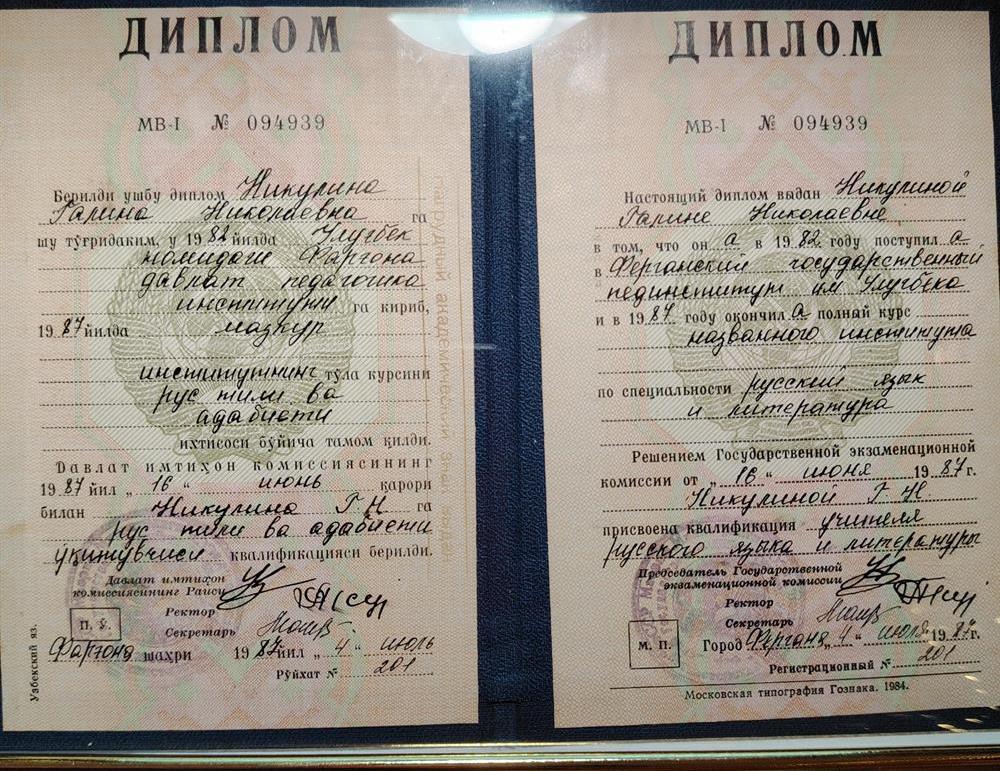 ДИПЛОМ
МВ-I № 094939
Берилди ушбу диплом Никулина
Галина Николаевна га
шу тўғридаким, у 1982 йилда Улуғбек
номидаги Фарғона
давлат педагогика
институти га кириб,
1987 йилда мазкур
институтнинг тўла курсини
рус тили ва
адабиёти
ихтисоси бўйича тамом қилди.
Давлат имтиҳон комиссиясининг
1987 йил „16“ июнь қарори
билан Никулина Г Н га
рус тили ва адабиёти
ўқитувчиси квалификацияси берилди.
Давлат имтиҳон
комиссиясининг Раиси
Ректор
Секретарь
П. Ў.
Фарғона шаҳри 1987 йил „4“ июль
Рўйхат № 201
Узбекский яз.
ДИПЛОМ
МВ-I № 094939
Настоящий диплом выдан Никулиной
Галине Николаевне
в том, что он а в 1982 году поступил а
в Ферганский государственный
пединститут им Улугбека
и в 1987 году окончил а полный курс
названного института
по специальности русский язык
и литература
Решением Государственной экзаменационной
комиссии от „16“ июня 1987 г.
Никулиной Г. Н.
присвоена квалификация учителя
русского языка и литературы
Председатель Государственной
экзаменационной комиссии
Ректор
Секретарь
М. П.
Город Фергана „4“ июля 1987 г.
Регистрационный № 201
Московская типография Гознака. 1984.